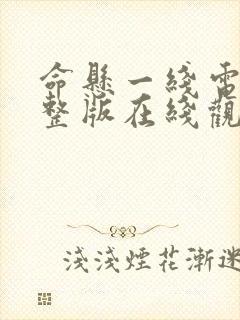 命懸一綫電
整版在綫觀
淺淺煙花漸迷